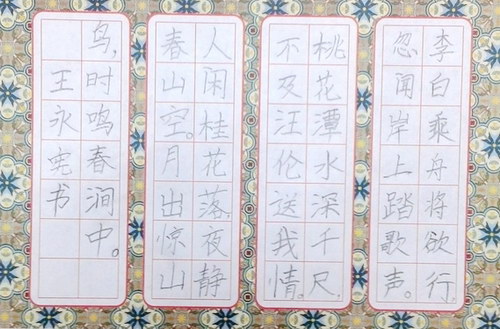 李白乘舟将欲行,
忽闻岸上踏歌声。
桃花潭水深千尺,
不及汪伦送我情。
人闲桂花落,夜静
春山空。月出惊山
鸟,时鸣春涧中。
王永宪书